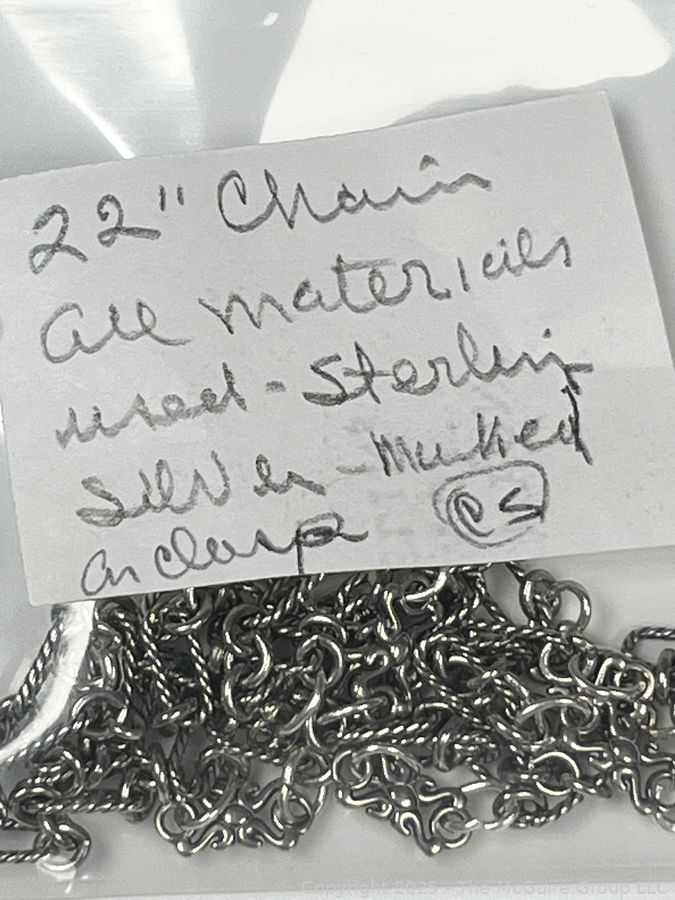 22" Chain
all materials
used - Sterling
Silver - Marked
on clasp CS
Copyright 2025 - The McGuire Group LLC